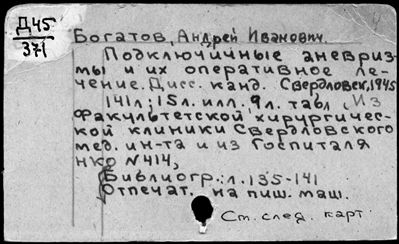 Д45
371
Богатов, Андрей Иванович.
Подключичные аневриз-
мы и их оперативное ле-
чение. Дисс. канд. Свердловск, 1945
141л; 15л. илл., 9л. табл. (Из
факультетской хирургичес-
кой клиники Свердловского
мед. ин-та и из госпиталя
НКО №414,
Библиогр.: л. 135-141
Отпечат. на пиш. маш.
См. след. карт.